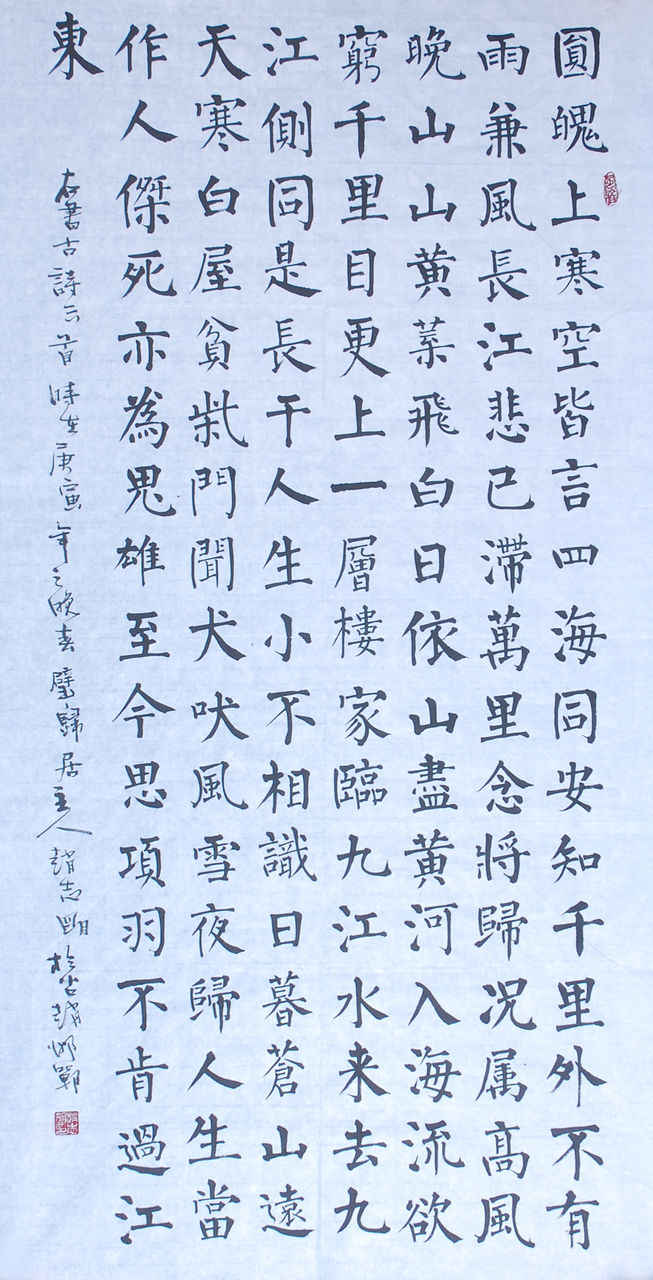 圓魄上寒空皆言四海同安知千里外不有
雨兼風長江悲已滯萬里念將歸况属髙風
晚山山黄葉飛白日依山盡黄河入海流欲
窮千里目更上一層樓家臨九江水来去九
江側同是長干人生小不相識日暮蒼山遠
天寒白屋貧柴門聞犬吠風雪夜歸人生當
作人傑死亦為鬼雄至今思項羽不肯過江
東
右書古詩六首時在庚寅年之晚春璧歸居主人趙志朙於古趙邯鄲